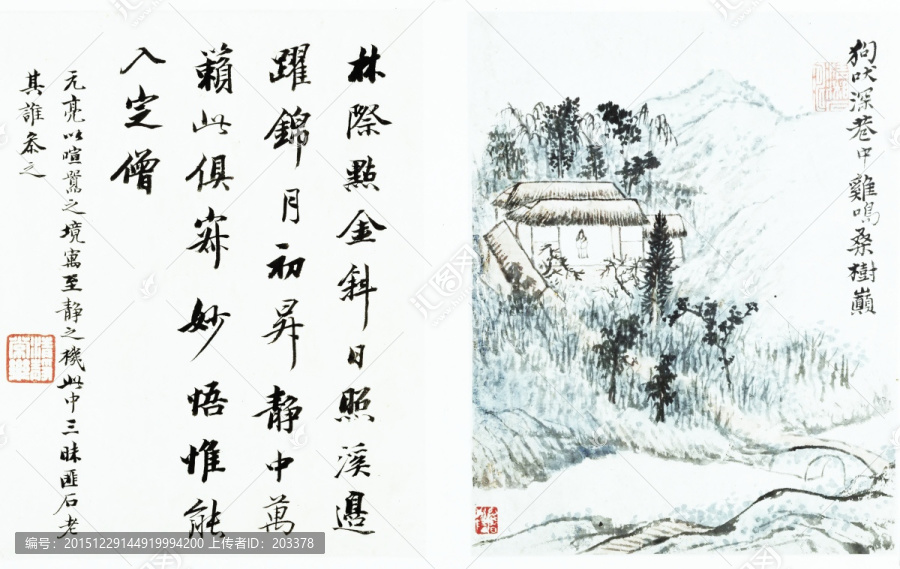 狗吠深巷中雞鳴桑樹巔
林際點金斜日照溪邊
躍錦月初昇靜中萬
籟此俱寂妙悟惟能
入定僧
元亮以喧囂之境寓至靜之機此中三昧匪石老
其誰叅之
编号:20151229144919994200 上传者ID:203378